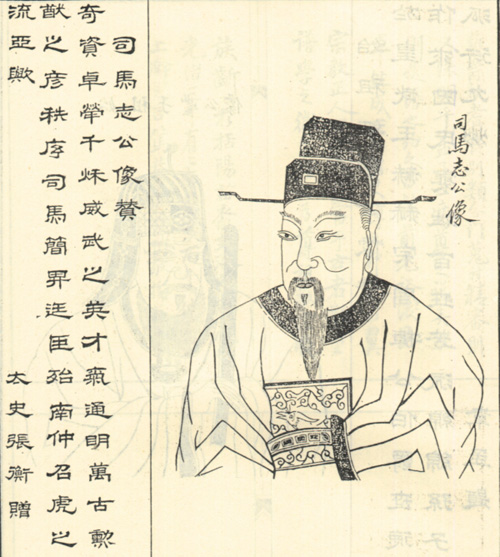 司馬志公像
司馬志公像贊
奇資卓犖千秌威武之英才氣通明萬古勲
猷之彦秩序司馬簡昇廷臣殆南仲召虎之
流亞歟
太史張衡贈